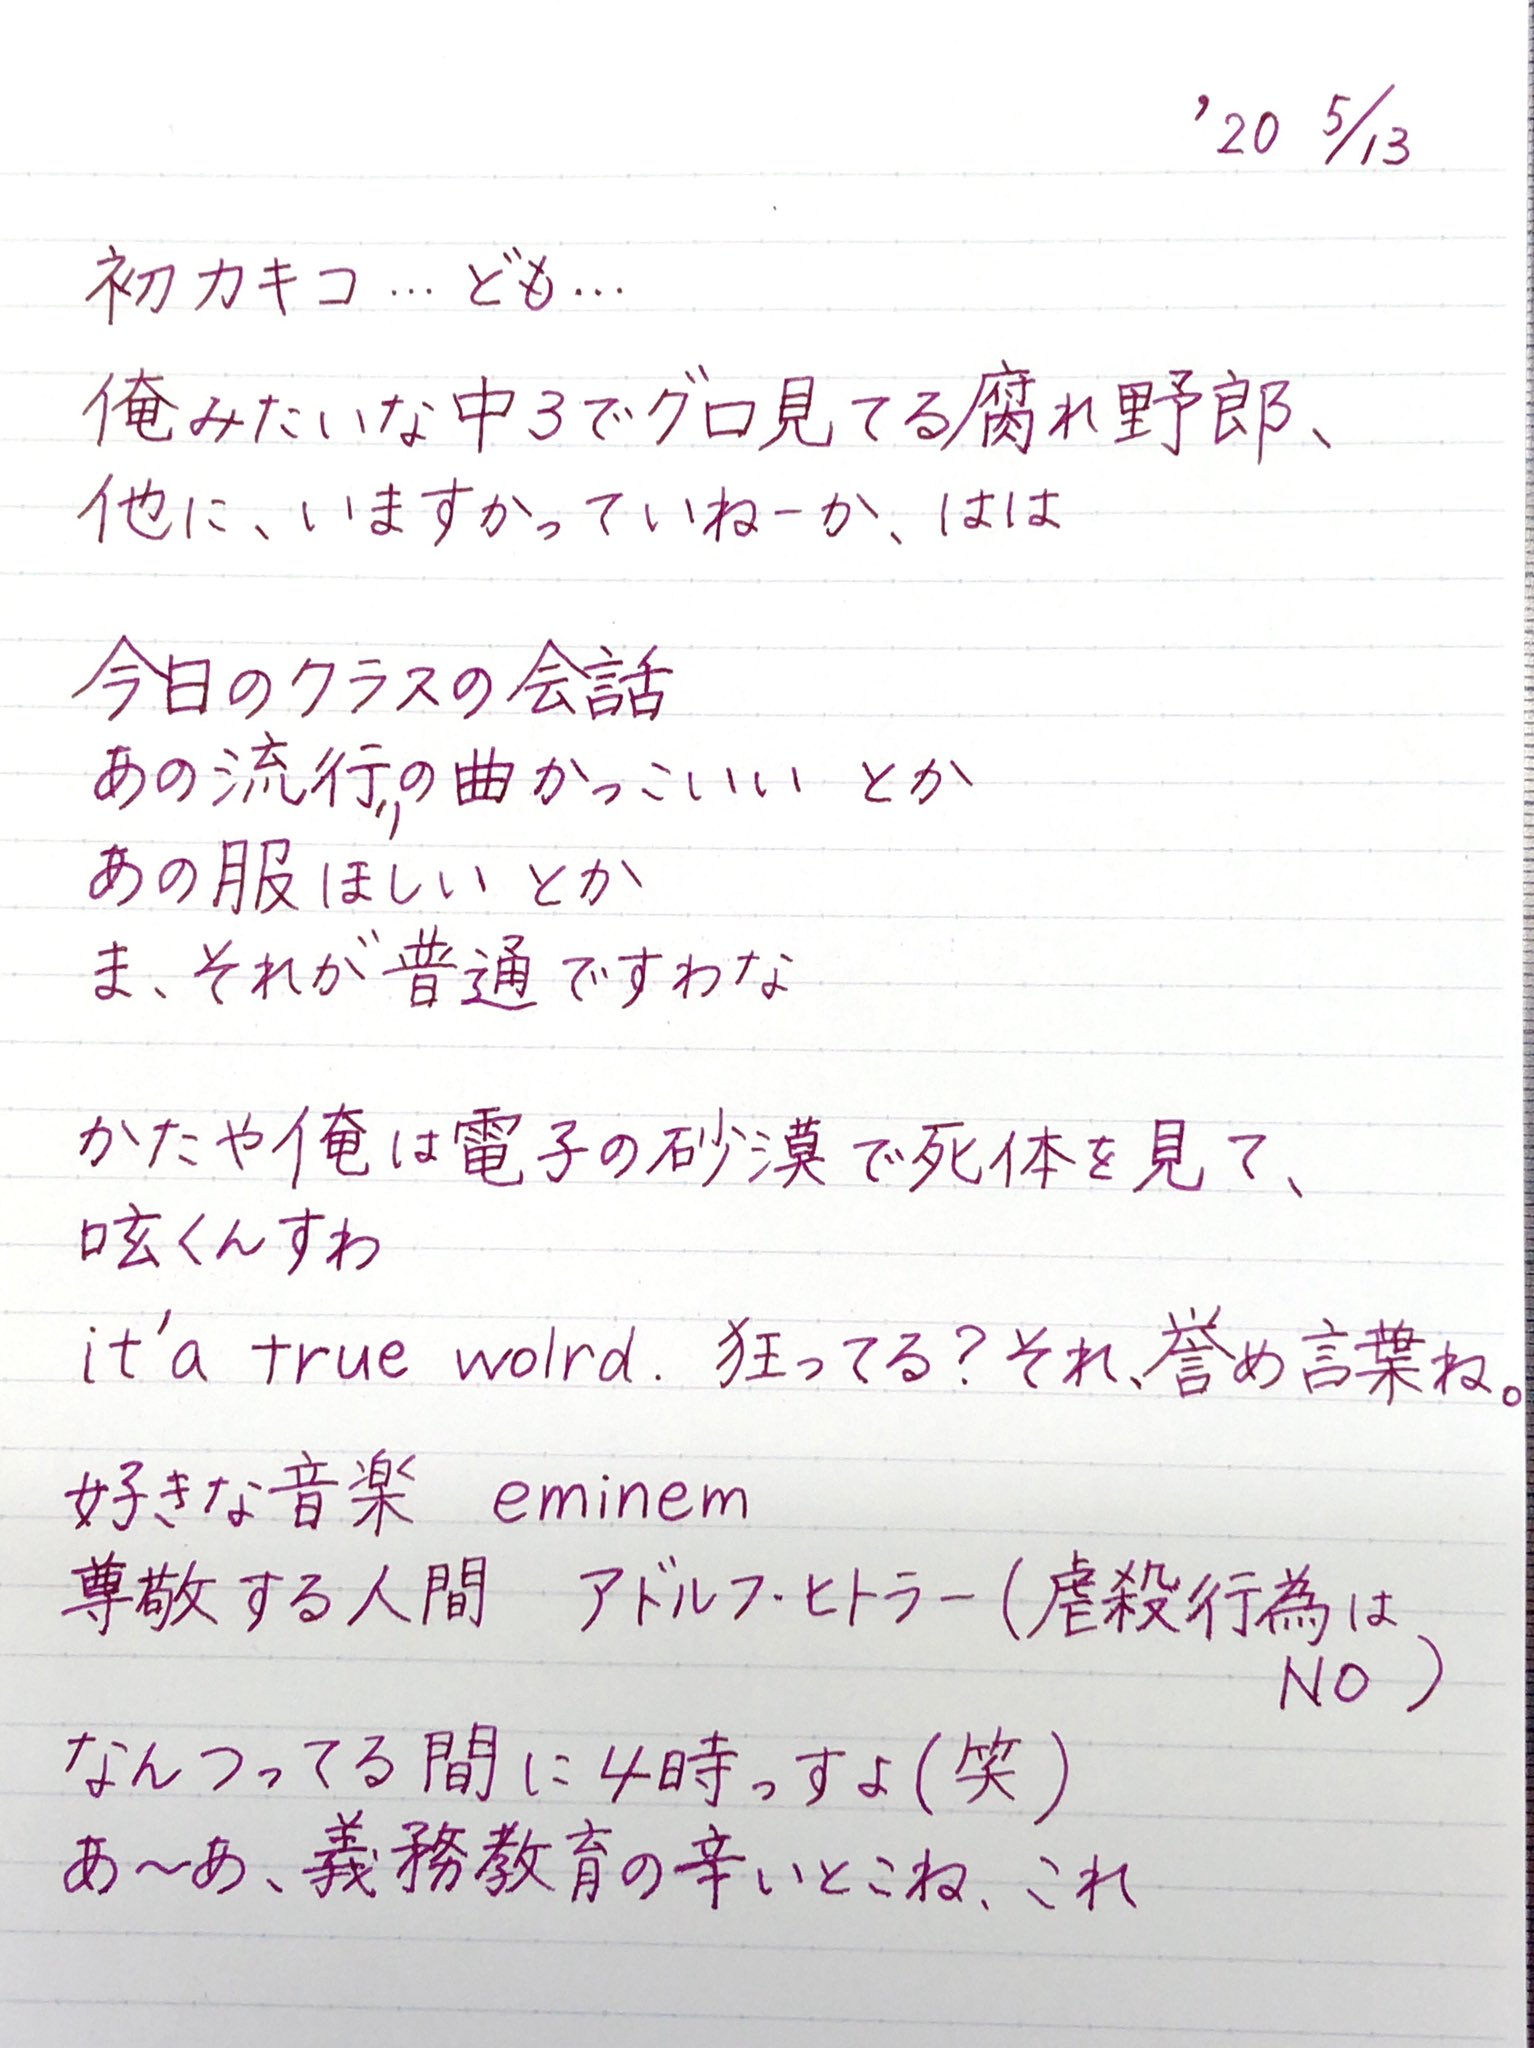 '20 5/13
初カキコ…ども…
俺みたいな中3でグロ見てる腐れ野郎、
他に、いますかっていねーか、はは
今日のクラスの会話
あの流行りの曲かっこいい とか
あの服ほしい とか
ま、それが普通ですわな
かたや俺は電子の砂漠で死体を見て、
呟くんすわ
it'a true wolrd. 狂ってる？それ、誉め言葉ね。
好きな音楽 eminem
尊敬する人間 アドルフ・ヒトラー(虐殺行為は
NO)
なんつってる間に4時っすよ(笑)
あ〜あ、義務教育の辛いとこね、これ